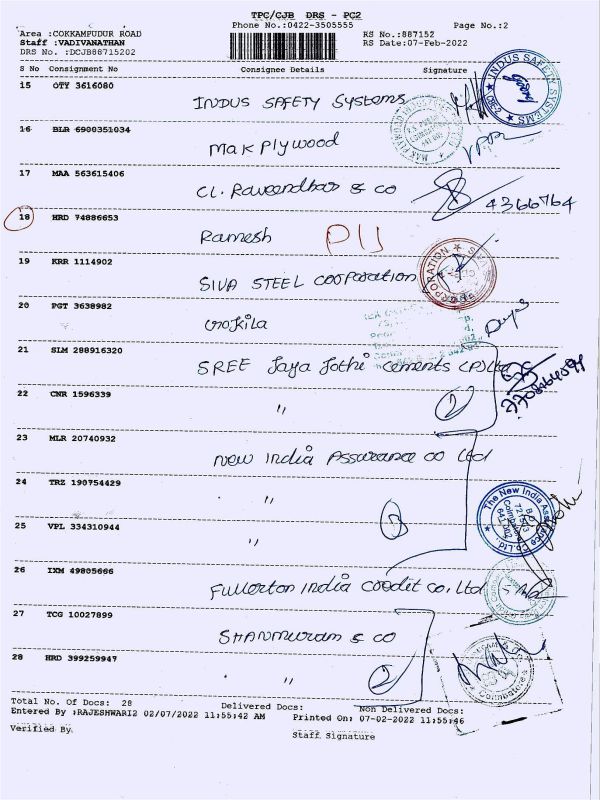 TPC/CJB DRS - PC2
Phone No.:0422-3505555
Page No.:2
Area :COKKAMPUDUR ROAD
Staff :VADIVANATHAN
DRS No. :DCJB88715202
RS No.:887152
RS Date:07-Feb-2022
S No Consignment No Consignee Details Signature
15 OTY 3616080
INDUS SAFETY Systems
INDUS SAFETY SYSTEMS
16 BLR 6900351034
Mak Plywood
17 MAA 563615406
CL. Raveendhar & co
4366764
18 HRD 74886653
Ramesh
19 KRR 1114902
SIVA STEEL CORPORATION
20 PGT 3638982
Kokila
21 SLM 288916320
SREE Jaya Jothi Cements (P) Ltd
22 CNR 1596339
" 2
23 MLR 20740932
New India Assurance Co Ltd
24 TRZ 190754429
"
The New India Assurance Co.Ltd.
25 VPL 334310944
" 3
26 IXM 49805666
Fullerton India Credit Co, Ltd
27 TCG 10027899
SHANMURAM & CO
28 HRD 399259947
" 2
Coimbatore
Total No. Of Docs: 28 Delivered Docs: Non Delivered Docs:
Entered By :RAJESHWARI2 02/07/2022 11:55:42 AM Printed On: 07-02-2022 11:55:46
Verified By
Staff Signature